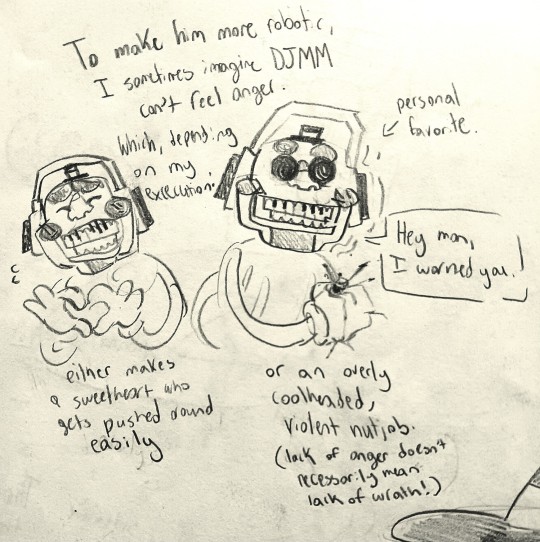 To make him more robotic,
I sometimes imagine DJMM
can't feel anger.
Which, depending
on my
execution,
personal
favorite.
Hey man,
I warned you.
either makes
a sweetheart who
gets pushed around
easily
or an overly
coolheaded,
violent nutjob.
(lack of anger doesn't
necessarily mean
lack of wrath!)